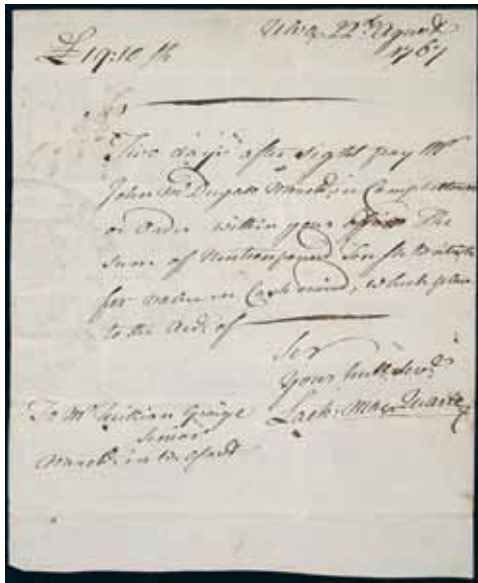 Ulva 22d August
1767
£19:10 sh
Sir
Two days after sight pay Mr
John McDugall Mercht in Campbeltown
or order within your The
sum of Ninteen pound Ten sh
for value in Cash , which place
to the Acct of
Sir
Your huble Servt
Lach: MacQuarie
To Mr William
Senior
Mercht in